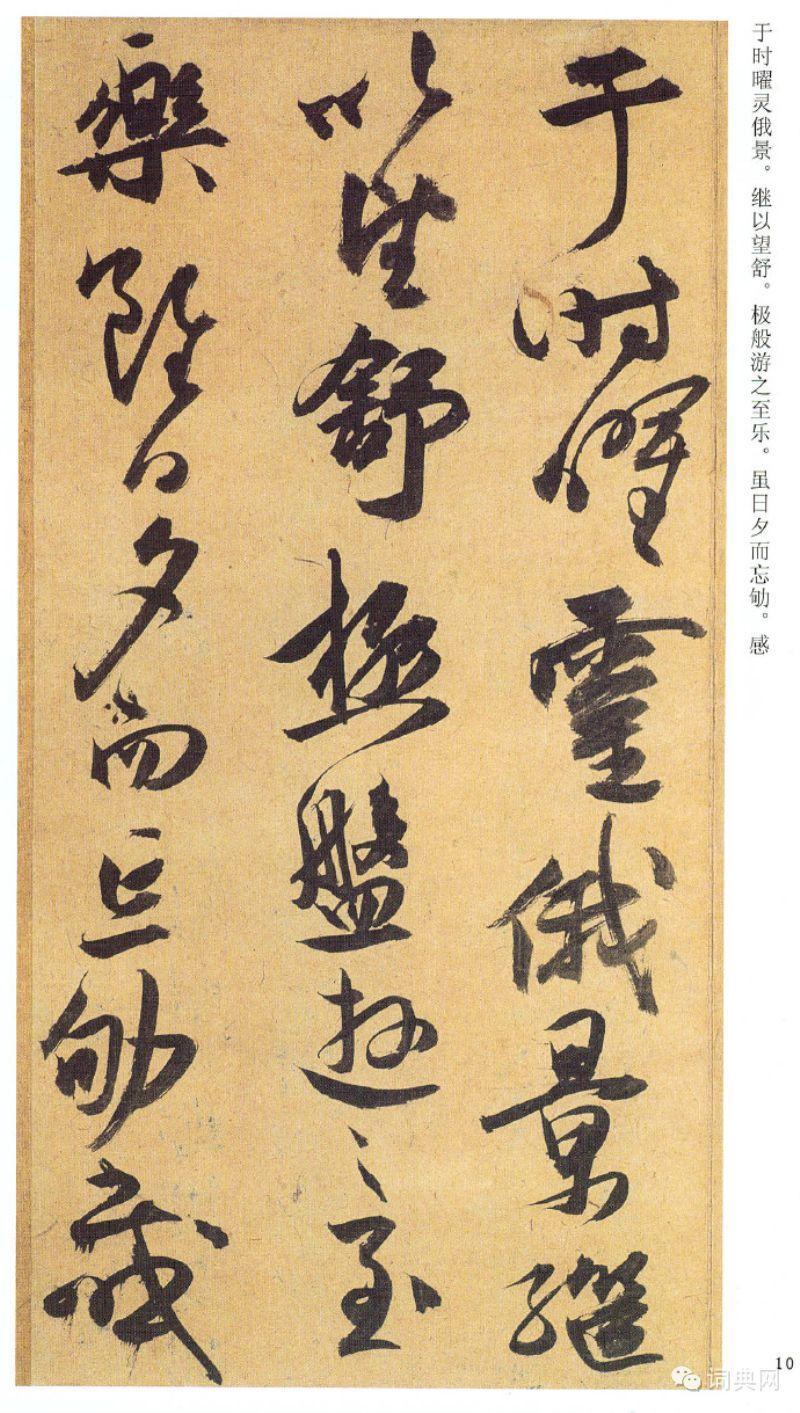 于时曜灵俄景。继以望舒。极般游之至乐。虽日夕而忘劬。感
于時曜靈俄景繼
以望舒極盤遊之至
樂雖日夕而忘劬感
10
词典网